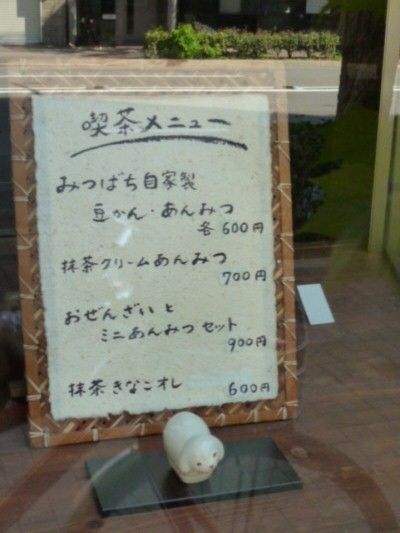 喫茶メニュー
みつばち自家製
豆かん・あんみつ
各600円
抹茶クリームあんみつ
700円
おぜんざいと
ミニあんみつセット
900円
抹茶きなこオレ 600円